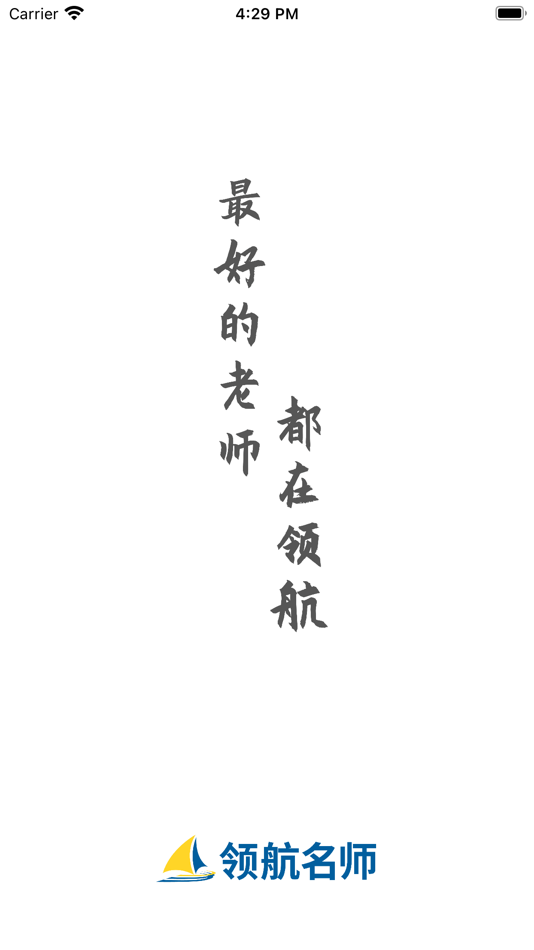 Carrier 4:29 PM
最好的老师
都在领航
领航名师